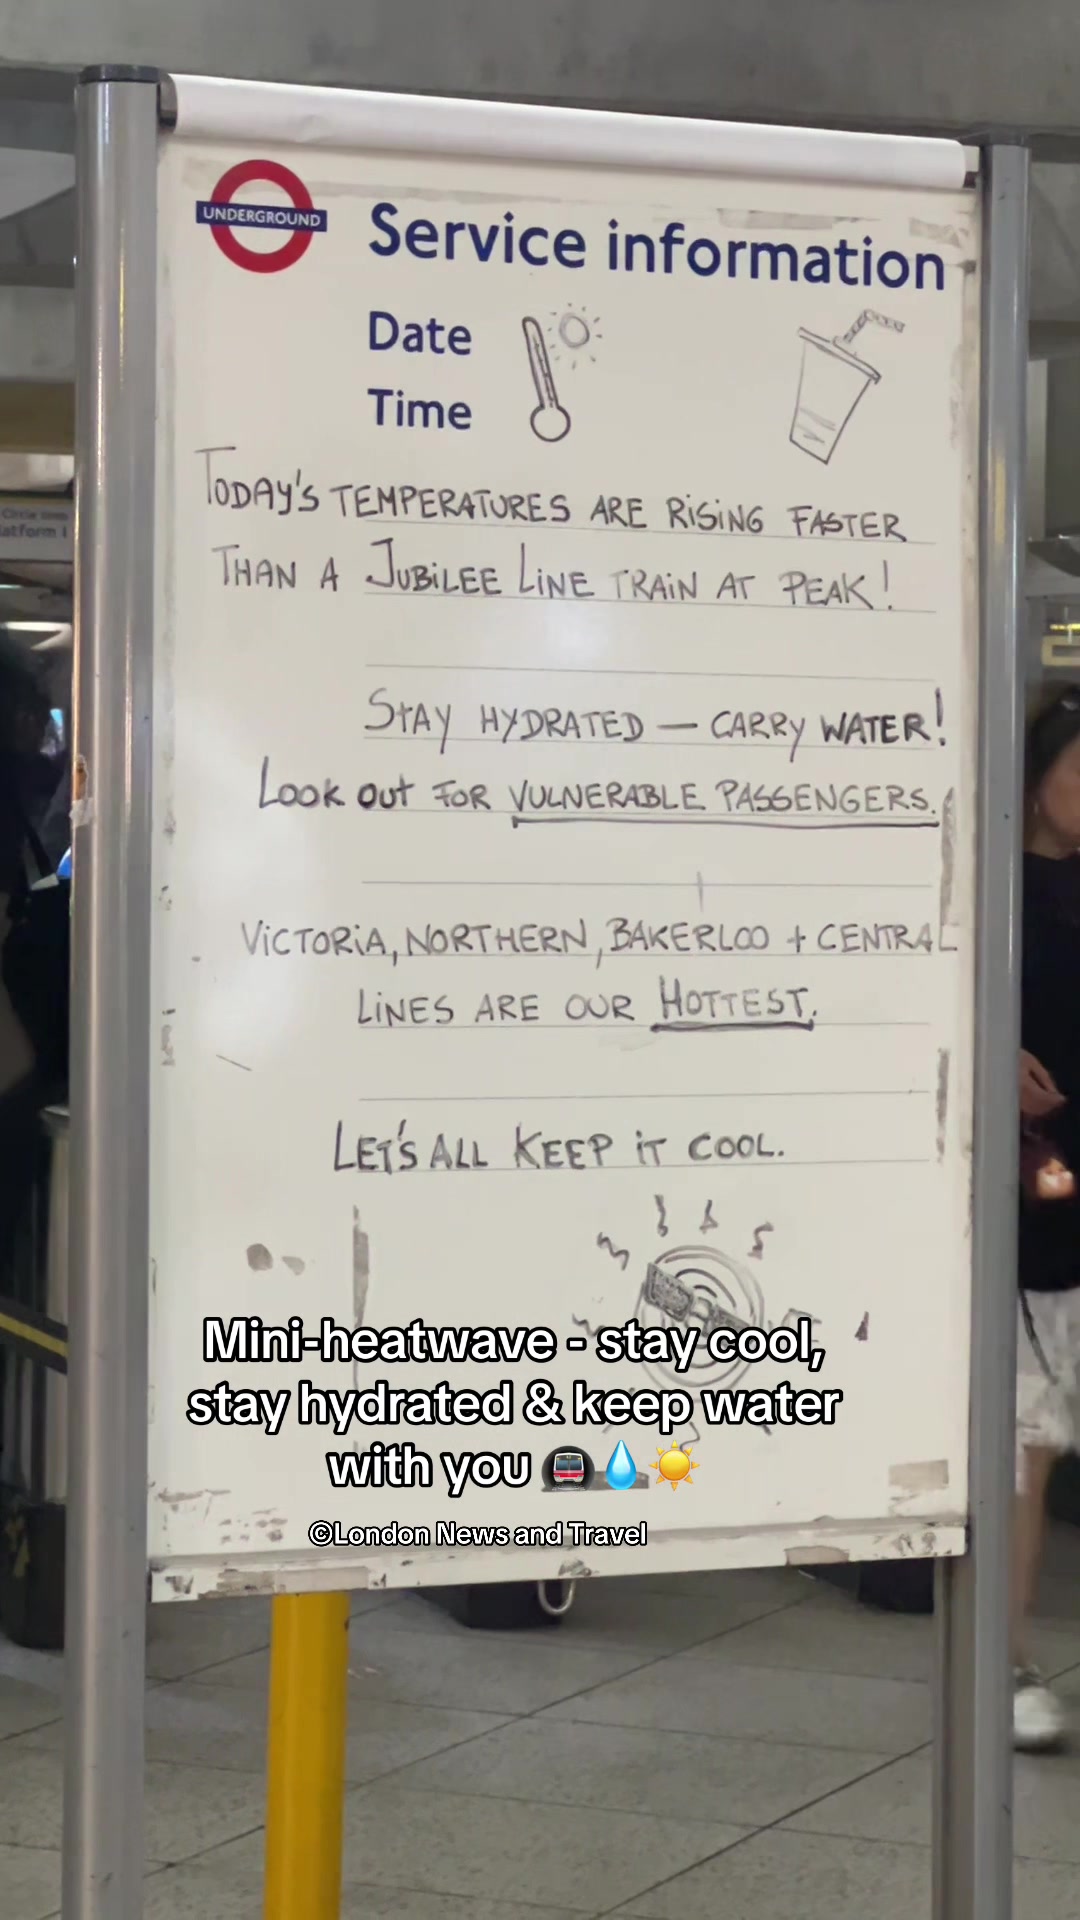 UNDERGROUND
Service information
Date
Time
TODAY'S TEMPERATURES ARE RISING FASTER
THAN A JUBILEE LINE TRAIN AT PEAK!
STAY HYDRATED — CARRY WATER!
LOOK OUT FOR VULNERABLE PASSENGERS.
VICTORIA, NORTHERN, BAKERLOO + CENTRAL
LINES ARE OUR HOTTEST.
LET'S ALL KEEP IT COOL.
Mini-heatwave - stay cool,
stay hydrated & keep water
with you 🚇💧☀️
©London News and Travel